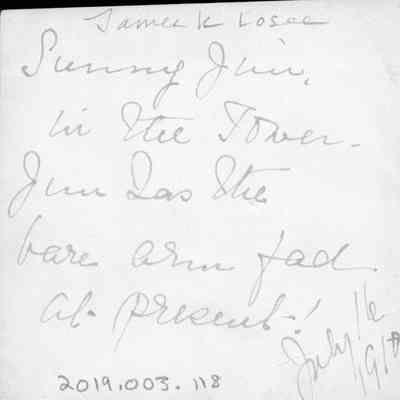 James K Losee
Sunny Jim,
in the Tower.
Jim has the
bare arm fad
at present!
July 16
2019.003.118